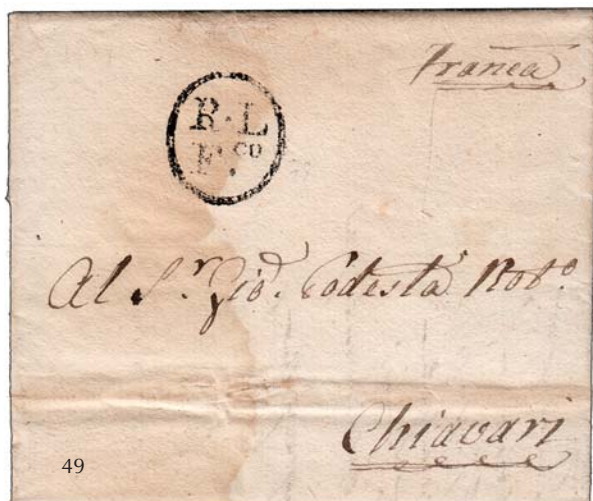 Franca
R. L
F.co
Al S.r Gio. Codesta Not.o
Chiavari
49